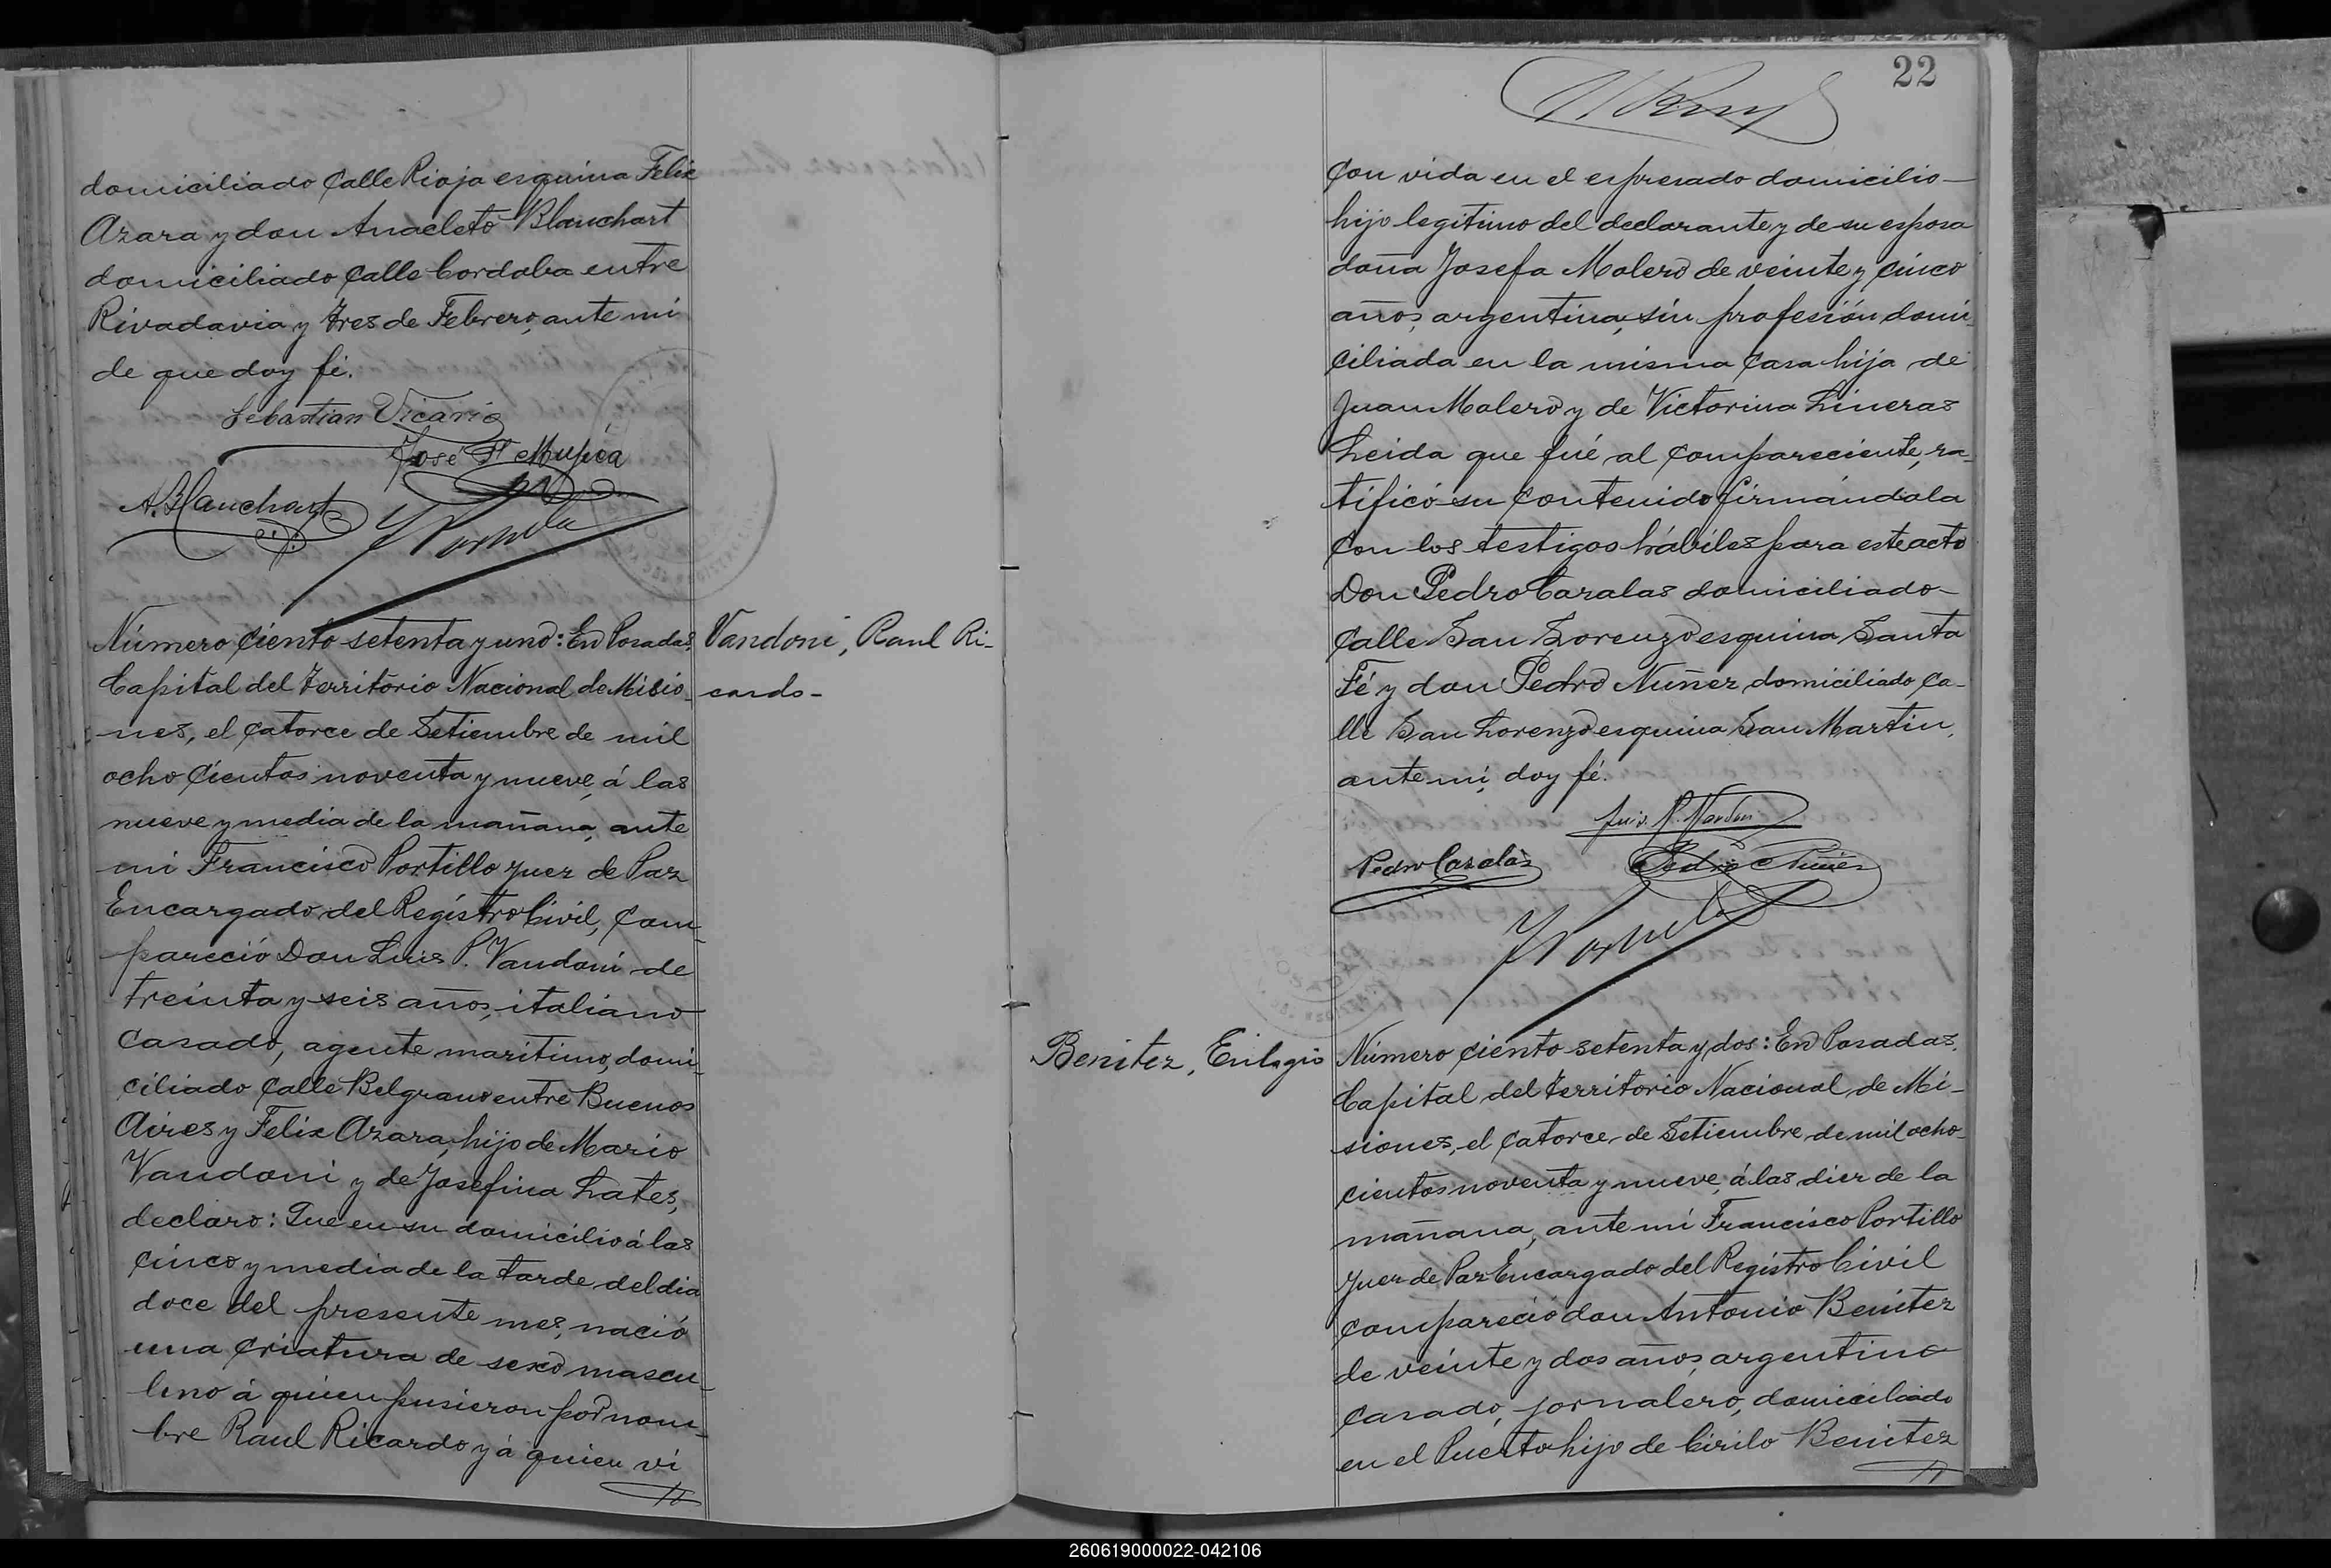 domiciliado Calle Rioja esquina Felix
Azara y don Anacleto Blanchart
domiciliado Calle Cordoba entre
Rivadavia y Tres de Febrero, ante mi
de que doy fé.
Sebastian Vicario
José F. Mujica
A. Blanchart
Número Ciento setenta y uno: En Posadas,
Capital del Territorio Nacional de Misio-
nes, el Catorce de Setiembre de mil
ocho Cientos noventa y nueve, á las
nueve y media de la mañana, ante
mi Francisco Portillo Juez de Paz
Encargado del Registro Civil, Com-
pareció Don Luis P. Vandoni de
treinta y seis años, italiano
Casado, agente maritimo, domi-
ciliado Calle Belgrano entre Buenos
Aires y Felix Azara, hijo de Mario
Vandoni y de Josefina Lates,
declaro: Que en su domicilio á las
Cinco y media de la tarde del dia
doce del presente mes, nació
una Criatura de sexo mascu-
lino á quien pusieron por nom-
bre Raul Ricardo y á quien vi
Vandoni, Raul Ri-
cardo-
22
Con vida en el espresado domicilio-
hijo legitimo del declarante y de su esposa
doña Josefa Molero de veinte y Cinco
años, argentina, sin profesión domi-
ciliada en la misma Casa hija de
Juan Molero y de Victorina Lineras
Leida que fué al Compareciente, ra-
tificó su Contenido firmándola
Con los testigos hábiles para este acto
Don Pedro Casalas domiciliado-
Calle San Lorenzo esquina Santa
Fé y don Pedro Nuñez domiciliado Ca-
lle San Lorenzo esquina San Martin,
ante mi, doy fé.
Luis P. Vandoni
Pedro Casalas
Pedro Nuñez
Benitez, Eulogio
Número Ciento setenta y dos: En Posadas,
Capital del Territorio Nacional de Mi-
siones, el Catorce de Setiembre de mil ocho-
cientos noventa y nueve, á las diez de la
mañana, ante mi Francisco Portillo
Juez de Paz Encargado del Registro Civil
Compareció don Antonio Benitez
de veinte y dos años, argentino
Casado, jornalero, domiciliado
en el Puerto hijo de Cirilo Benitez
260619000022-042106